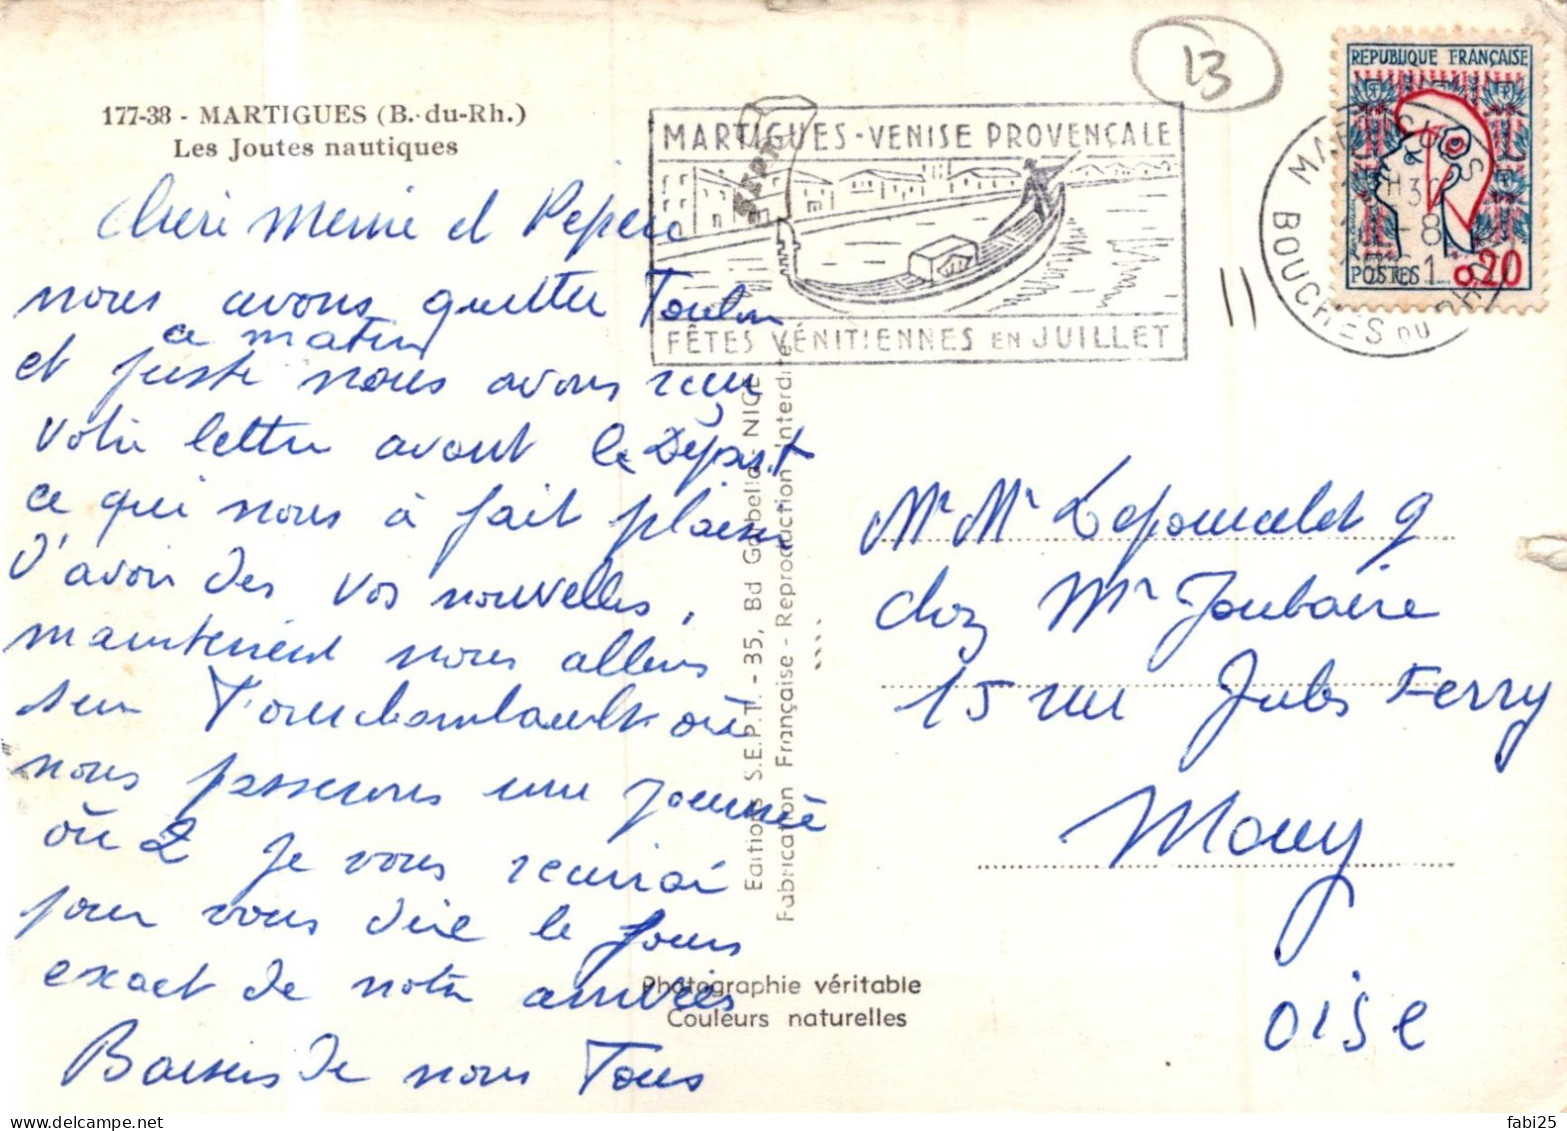 177-38 - MARTIGUES (B.-du-Rh.)
Les Joutes nautiques
cheri Memie et Pepere
nous avons quitter Toulon
ce matin
et juste nous avons reçu
votre lettre avant le Départ
ce qui nous à fait plaisir
d'avoir des vos nouvelles,
maintenent nous allons
sur Fourchambault où
nous passerons une journée
ou 2 je vous
pour vous dire le jours
exact de notre arrivées
Baisers de nous Tous
SEPT
Editions S.E.P.T. - 35, Bd Gorbella - NICE
Fabrication Française - Reproduction Interdite
Photographie véritable
Couleurs naturelles
13
MARTIGUES - VENISE PROVENÇALE
FÊTES VÉNITIENNES EN JUILLET
REPUBLIQUE FRANÇAISE
POSTES 0,20
MARTIGUES
H30
-8
BOUCHES DU RHONE
Mr Mr
chez Mr Joubaire
15 rue Jules Ferry
Mouy
OISE
delcampe.net
fabi25